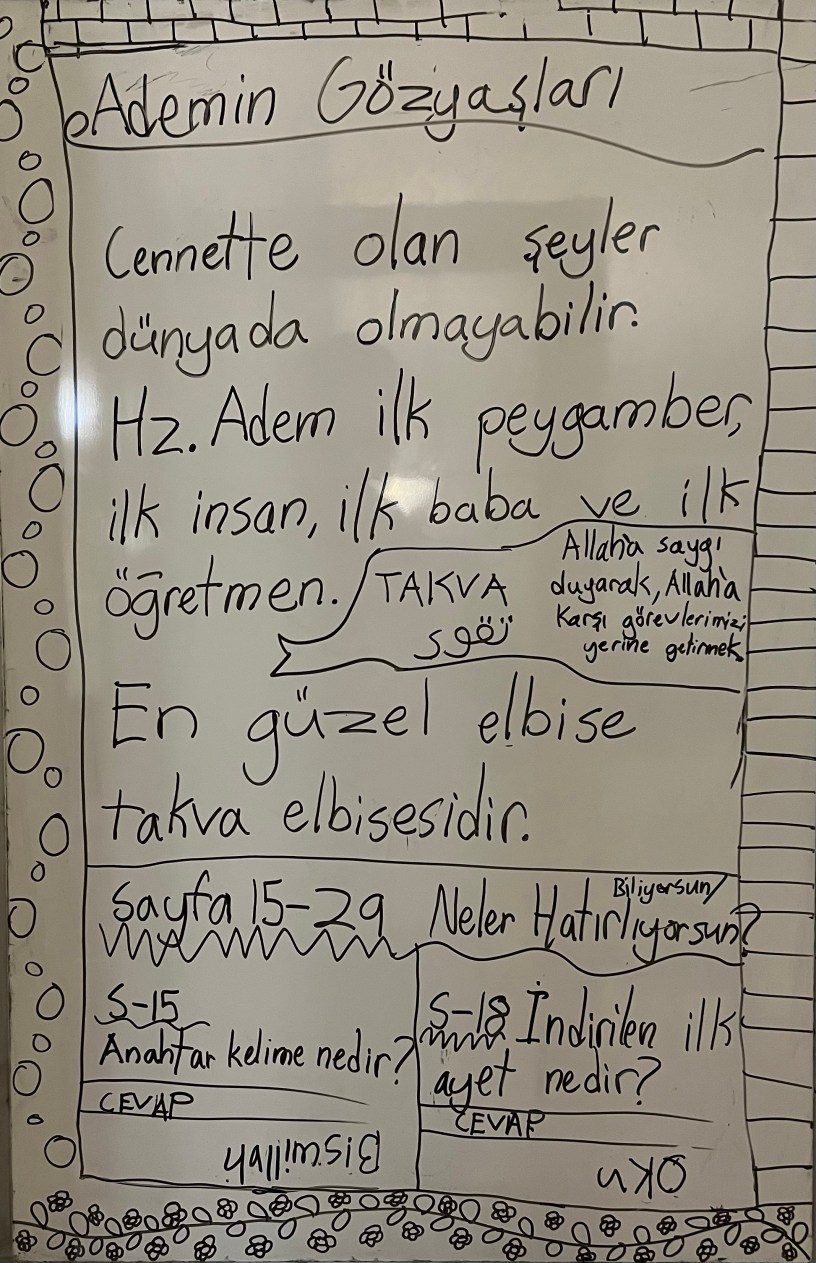 Ademin Gözyaşları
Cennette olan şeyler
dünyada olmayabilir.
Hz. Adem ilk peygamber,
ilk insan, ilk baba ve ilk
öğretmen.
TAKVA
تقوى
Allah'a saygı
duyarak, Allah'a
karşı görevlerimizi
yerine getirmek
En güzel elbise
takva elbisesidir.
Sayfa 15-29
Neler Biliyorsun/
Hatırlıyorsun?
S-15
Anahtar kelime nedir?
CEVAP
Bismillah
S-18 İndirilen ilk
ayet nedir?
CEVAP
Oku